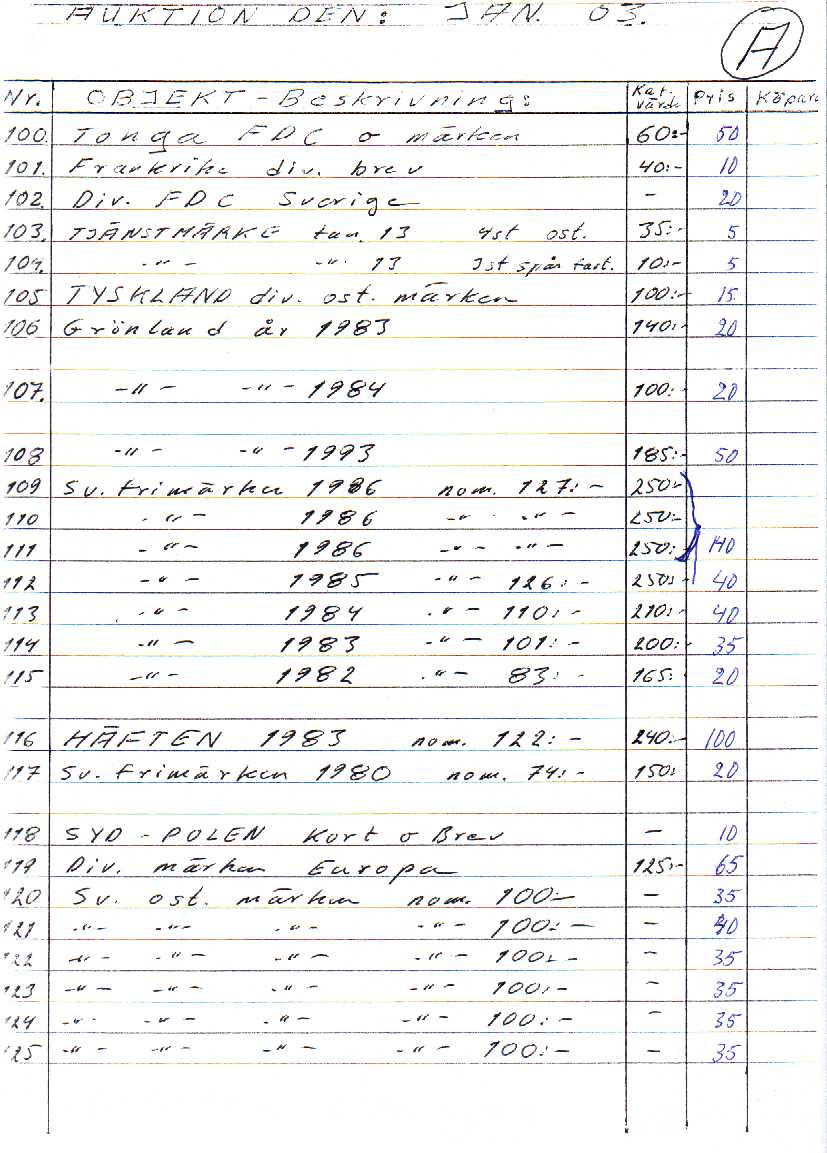 AUKTION DEN: JAN. 03.
A
Nr. OBJEKT-Beskrivning: Kat. värde Pris Köpare
100. Tonga FDC o märken 60:- 50
101. Frankrike div. brev 40:- 10
102. Div. FDC Sverige - 20
103. TJÄNSTMÄRKE tan. 13 4st ost. 35:- 5
104. -"- -"- 13 1st spår fast. 10:- 5
105 TYSKLAND div. ost. märken 100:- 15
106 Grönland år 1983 140:- 20
107. -"- -"- 1984 100:- 20
108 -"- -"- 1993 185:- 50
109 Sv. frimärken 1986 nom. 127:- 250:-
110 -"- 1986 -"- -"- 250:-
111 -"- 1986 -"- -"- 250:- 140
112 -"- 1985 -"- 126:- 250:- 40
113 -"- 1984 -"- 110:- 210:- 40
114 -"- 1983 -"- 101:- 200:- 35
115 -"- 1982 -"- 83:- 165: 20
116 HÄFTEN 1983 nom. 122:- 240:- 100
117 Sv. frimärken 1980 nom. 74:- 150: 20
118 SYD-POLEN Kort o Brev - 10
119 Div. märken Europa 125:- 65
120 Sv. ost. märken nom. 100:- - 35
121 -"- -"- -"- -"- 100:- - 40
122 -"- -"- -"- -"- 100:- - 35
123 -"- -"- -"- -"- 100:- - 35
124 -"- -"- -"- -"- 100:- - 35
125 -"- -"- -"- -"- 100:- - 35